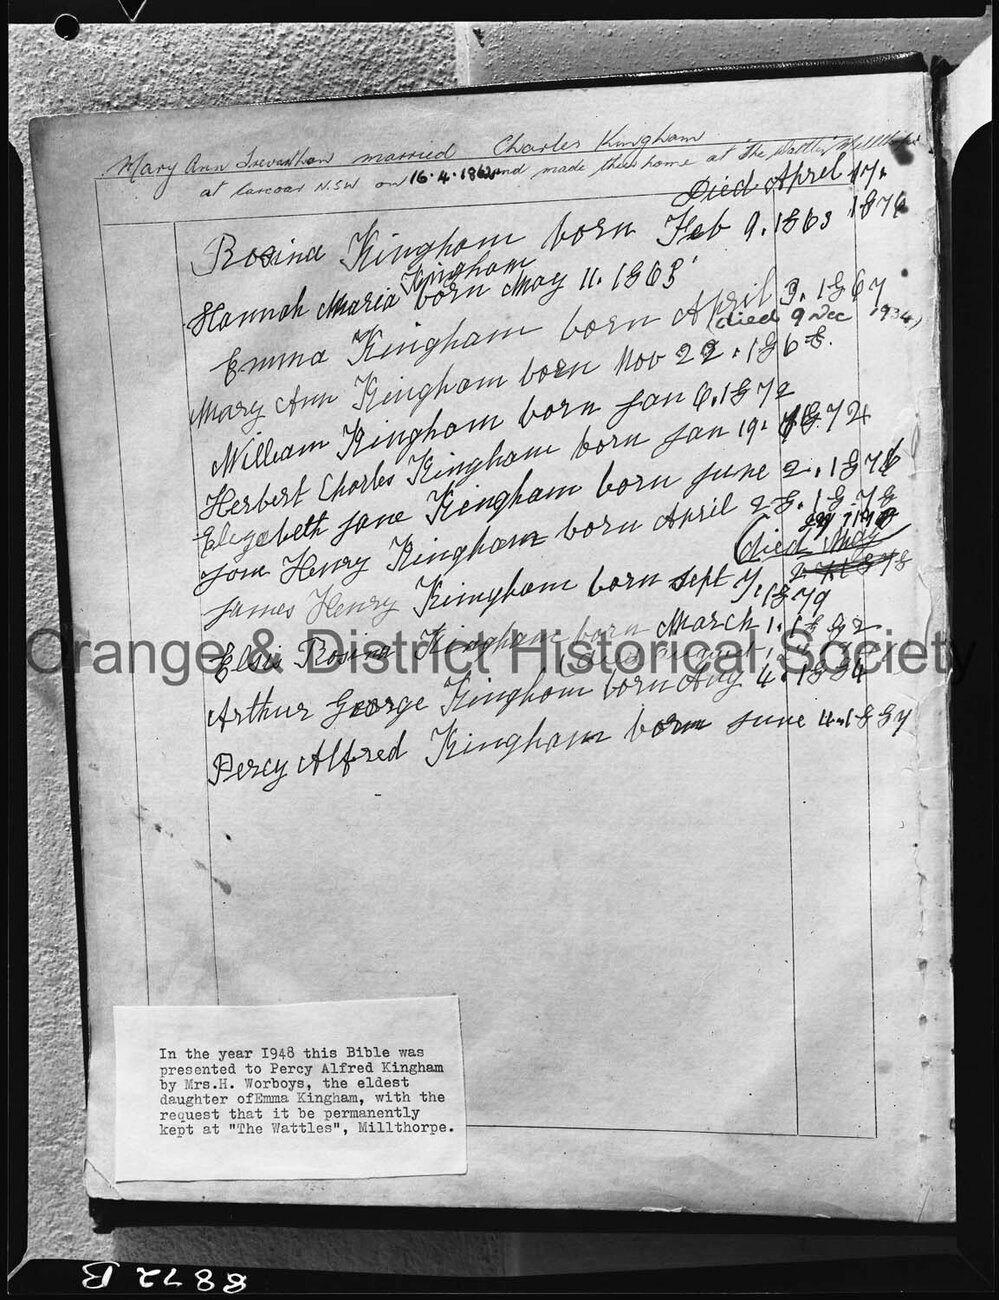 Mary Ann Trevarthan married Charles Kingham
at Carcoar N.S.W on 16.4.1862 and made their home at The Wattles Millthorpe
Died April 17.
Rosina Kingham born Feb 9.1863 1876
Kingham
Hannah Maria born May 11.1865
Emma Kingham born April 3.1867
(died 9 Dec 1934)
Mary Ann Kingham born Nov 22.1868.
William Kingham born Jan 6.1872
Herbert Charles Kingham born Jan 19. 1874
Elizabeth Jane Kingham born June 2.1876
Tom Henry Kingham born April 28.18.78
(died May
James Henry Kingham born Sept 7.1879
Elsie Rosina Kingham born March 1.1882
died August
Arthur George Kingham born Aug 4.1884
Percy Alfred Kingham born June 4.1887
Orange & District Historical Society
In the year 1948 this Bible was
presented to Percy Alfred Kingham
by Mrs.H. Worboys, the eldest
daughter ofEmma Kingham, with the
request that it be permanently
kept at "The Wattles", Millthorpe.
8872 B